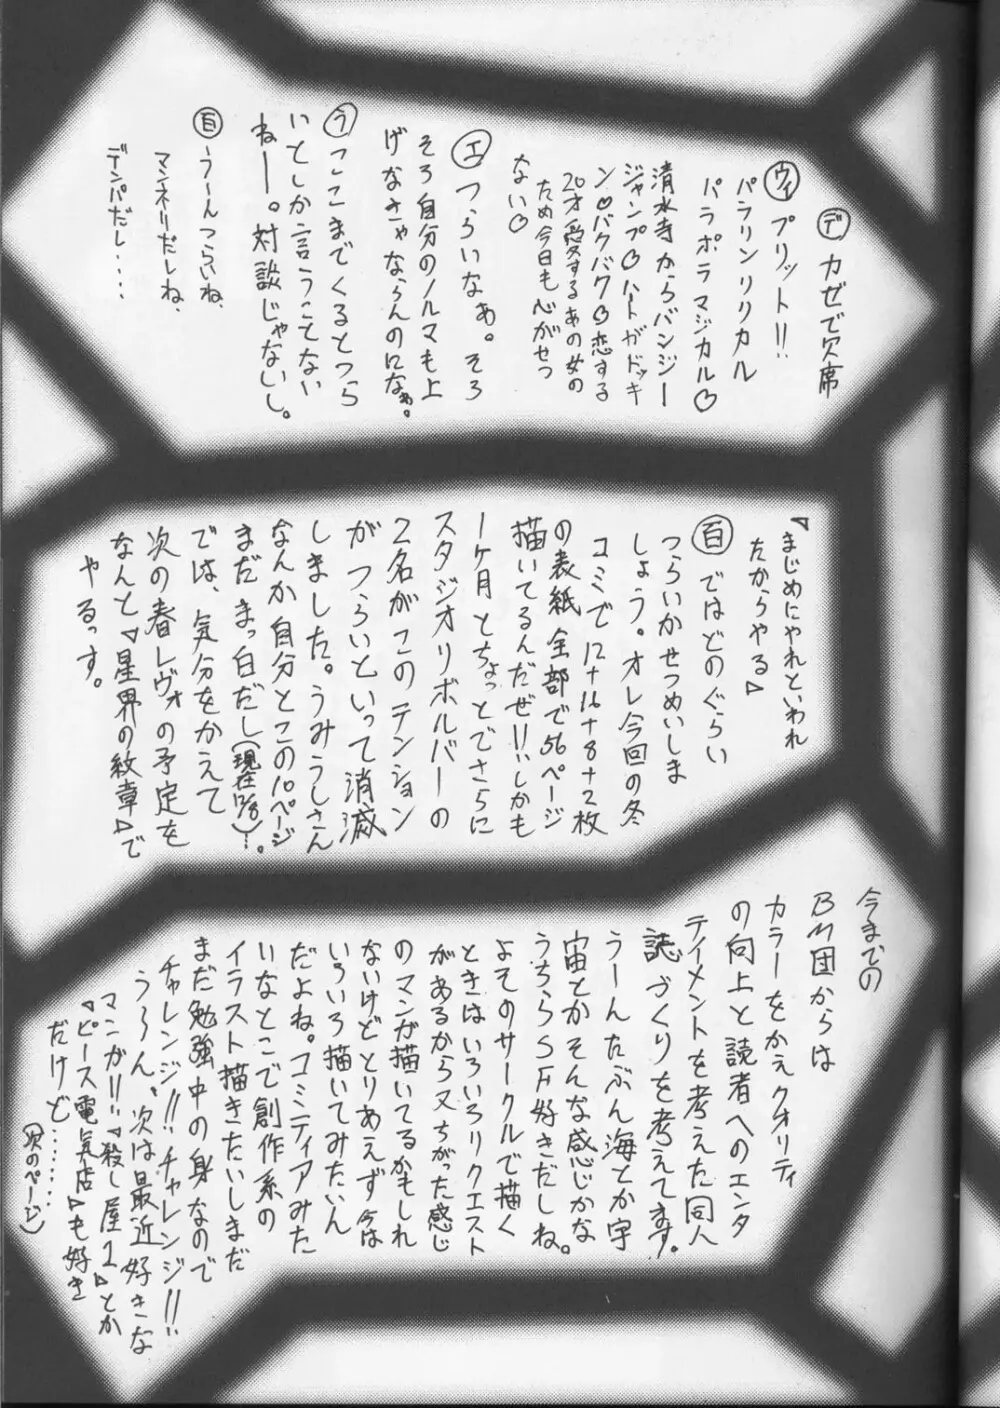 デ カゼで欠席
ウィ プリット!!
パラリン リリカル
パラポラ マジカル♡
清水寺からバンジー
ジャンプ♡ハートがドッキ
ン♡バクバク♡恋する
20才愛するあの女の
ため今日も心がせつ
ない♡
エ つらいなぁ。そろ
そろ自分のノルマも上
げなきゃならんのになぁ。
う ここまでくるとつら
いとしか言うことない
ねー。対談じゃないし。
百 う〜んつらいね、
マンネリだしね、
デンパだし‥‥
「まじめにやれといわれ
たからやる」
百 ではどのぐらい
つらいかせつめいしま
しょう。オレ今回の冬
コミで12+16+8+2枚
の表紙全部で56ページ
描いてるんだぜ!!しかも
1ヶ月とちょっとでさらに
スタジオリボルバーの
2名がこのテンション
がつらいといって消滅
しました。うみうしさん
なんか自分とこの10ページ
まだまっ白だし(現在12/8)…。
では、気分をかえて
次の春レヴォの予定を
なんと「星界の紋章」で
やるっす。
今までの
BM団からは
カラーをかえクオリティ
の向上と読者へのエンタ
テイメントを考えた同人
誌づくりを考えてます。
うーんたぶん海とか宇
宙とかそんな感じかな
うちらSF好きだしね。
よそのサークルで描く
ときはいろいろリクエスト
があるから又ちがった感じ
のマンガ描いてるかもしれ
ないけどとりあえず今は
いろいろ描いてみたいん
だよね。コミティアみた
いなとこで創作系の
イラスト描きたいしまだ
まだ勉強中の身なので
チャレンジ!!チャレンジ!!
う〜ん、次は最近好きな
マンガ!!「殺し屋1」とか
「ピース電気店」も好き
だけど‥‥‥
(次のページ)